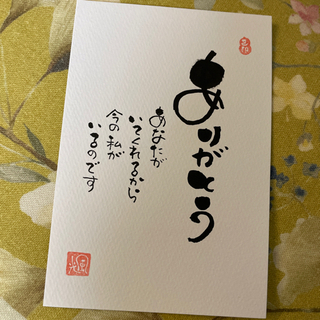 ありがとう
あなたが
いてくれるから
今の私が
いるのです